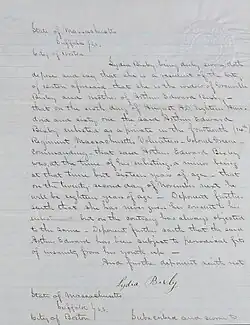 State of Massachusetts
Suffolk ss.
City of Boston
Lydia Bixby, being duly sworn, doth
depose and say that she is a resident of the City
of Boston aforesaid, that she is the widow of
Bixby and mother of Arthur Edward Bixby –
that on the sixth day of August A.D. Eighteen hun-
dred and sixty one the said Arthur Edward
Bixby enlisted as a private in the fourteenth (14)
Regiment Massachusetts Volunteers – Colonel Green
commanding – that said Arthur Edward Bixby
was, at the time of his enlisting, a minor being
at that time but sixteen years of age – that
on the twenty second day of November next he
will be eighteen years of age – Deponent further
saith that she has never given her consent
but on the contrary has always objected
to the same – Deponent further saith that the said
Arthur Edward has been subject to periodical fits
of insanity from his youth up –
And further deponent saith not
Lydia Bixby
State of Massachusetts
Suffolk ss.
City of Boston
Subscribed and sworn to